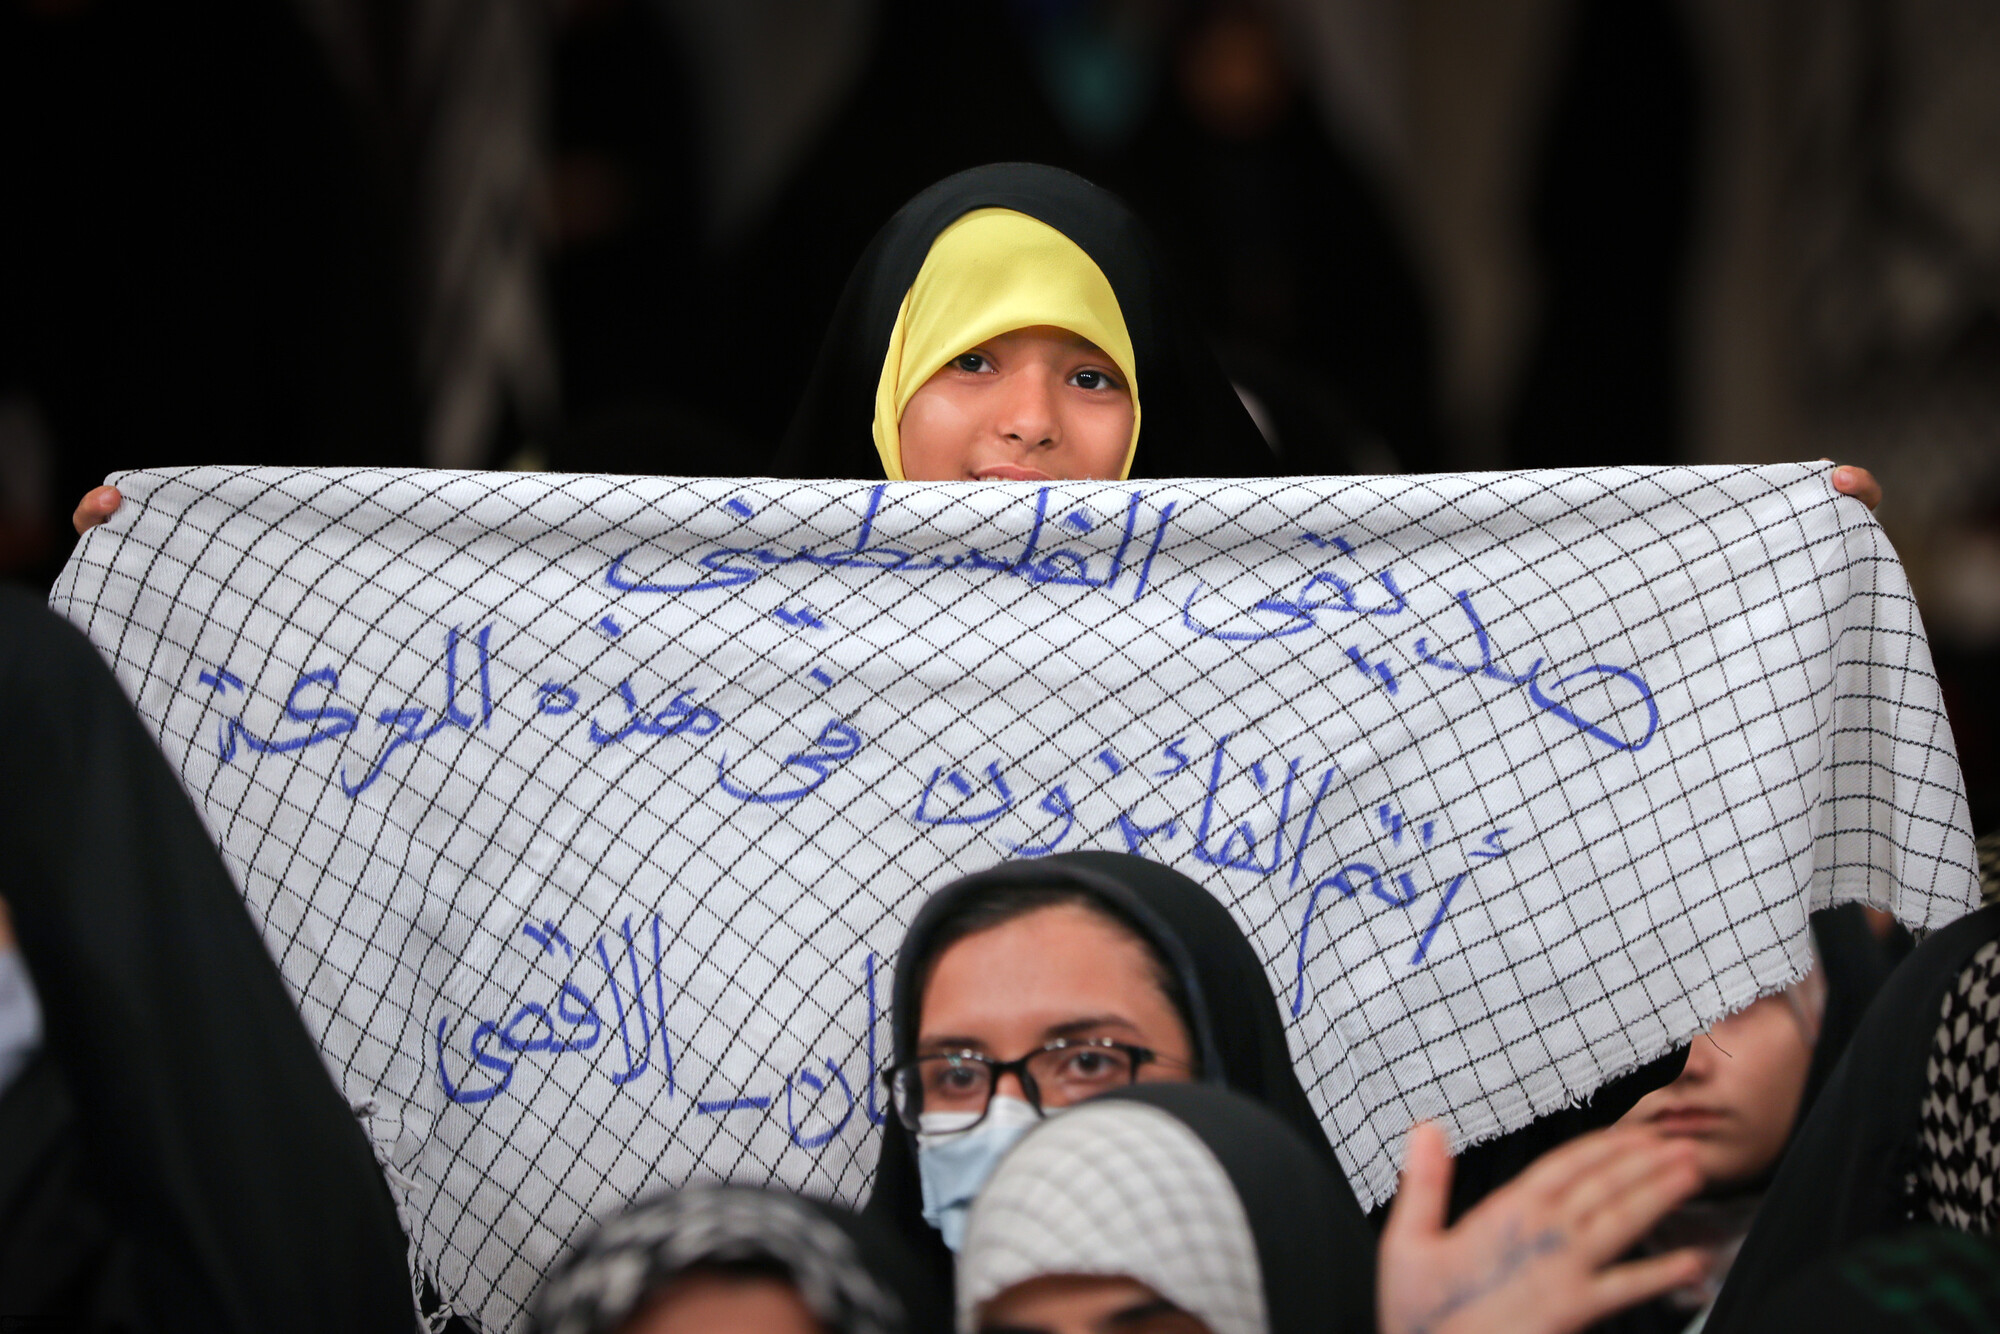 صديقى الفلسطينى
أنتم الفائزون فى هذه المعركة
الاقصى